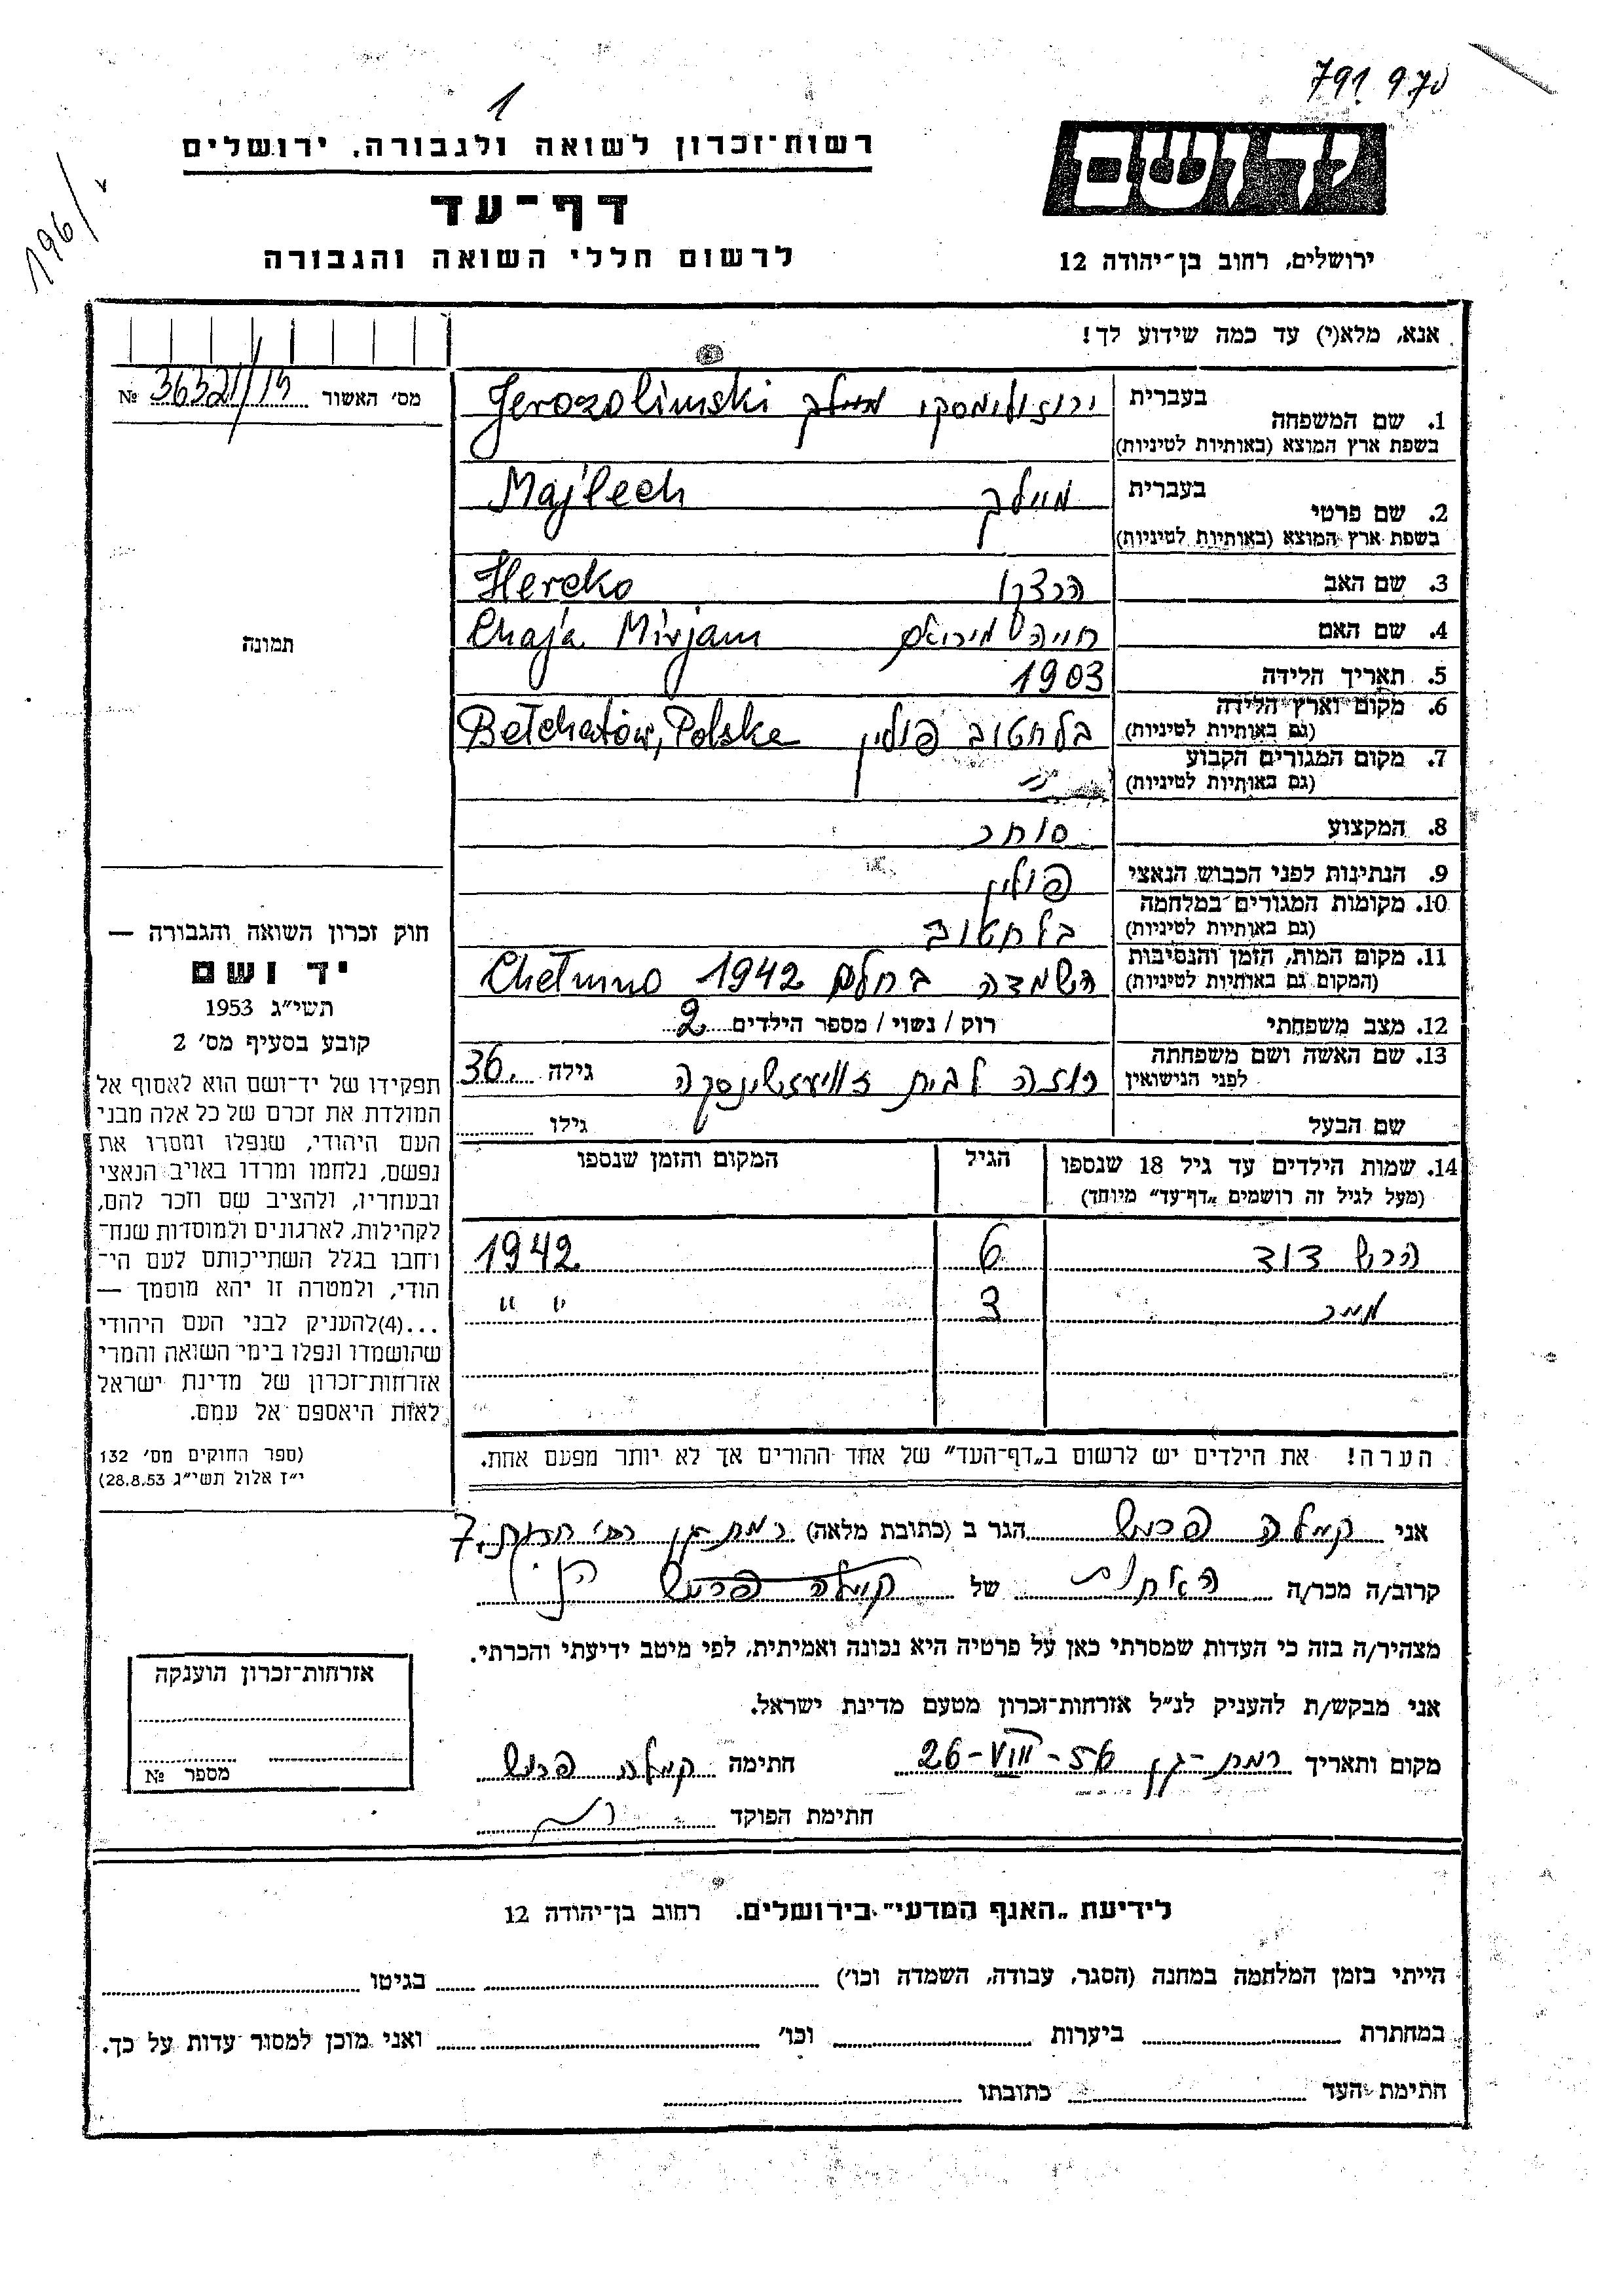 791 970
1
196/
רשות־זכרון לשואה ולגבורה, ירושלים
יד ושם
דף־עד
לרשום חללי השואה והגבורה
ירושלים, רחוב בן־יהודה 12
אנא, מלא(י) עד כמה שידוע לך!
מס' האשור № 36321/
1. שם המשפחה
בעברית ירוזולימסקי מיילך Jerozolimski
בשפת ארץ המוצא (באותיות לטיניות)
2. שם פרטי
בעברית מיילך Majlech
בשפת ארץ המוצא (באותיות לטיניות)
3. שם האב הרצקו Hercko
4. שם האם חייה מיריאם Chaja Mirjam
5. תאריך הלידה 1903
6. מקום וארץ הלידה
(גם באותיות לטיניות) בלחטוב פולין Bełchatów, Polska
7. מקום המגורים הקבוע
(גם באותיות לטיניות) "
8. המקצוע סוחר
9. הנתינות לפני הכבוש הנאצי פולין
10. מקומות המגורים במלחמה
(גם באותיות לטיניות) בלחטוב
11. מקום המות, הזמן והנסיבות
(המקום גם באותיות לטיניות) השמדה בחלם 1942 Chełmno
12. מצב משפחתי רוק / נשוי / מספר הילדים 2
13. שם האשה ושם משפחתה
לפני הנישואין רוזה לבית גילה 36
שם הבעל גילו
14. שמות הילדים עד גיל 18 שנספו
(מעל לגיל זה רושמים „דף־עד" מיוחד)
הגיל
המקום והזמן שנספו
הרש דוד 6 1942
3 " "
הערה! את הילדים יש לרשום ב„דף־העד" של אחד ההורים אך לא יותר מפעם אחת.
תמונה
חוק זכרון השואה והגבורה —
יד ושם
תשי"ג 1953
קובע בסעיף מס' 2
תפקידו של יד־ושם הוא לאסוף אל
המולדת את זכרם של כל אלה מבני
העם היהודי, שנפלו ומסרו את
נפשם, נלחמו ומרדו באויב הנאצי
ובעוזריו, ולהציב שם וזכר להם,
לקהילות, לארגונים ולמוסדות שנח־
רבו בגלל השתייכותם לעם הי־
הודי, ולמטרה זו יהא מוסמך —
...(4) להעניק לבני העם היהודי
שהושמדו ונפלו בימי השואה והמרי
אזרחות־זכרון של מדינת ישראל
לאות היאספם אל עמם.
(ספר החוקים מס' 132
י"ז אלול תשי"ג 28.8.53)
אני קמלה פרש הגר ב (כתובת מלאה) רמת גן 7
קרוב/ה מכר/ה האחות של
מצהיר/ה בזה כי העדות שמסרתי כאן על פרטיה היא נכונה ואמיתית, לפי מיטב ידיעתי והכרתי.
אני מבקש/ת להעניק לנ"ל אזרחות־זכרון מטעם מדינת ישראל.
מקום ותאריך רמת־גן 26-VIII-56 חתימה קמלה פרש
חתימת הפוקד
אזרחות־זכרון הוענקה
מספר №
לידיעת „האגף המדעי" בירושלים. רחוב בן־יהודה 12
הייתי בזמן המלחמה במחנה (הסגר, עבודה, השמדה וכו') בגיטו
במחתרת ביערות וכו' ואני מוכן למסור עדות על כך.
חתימת העד כתובתו